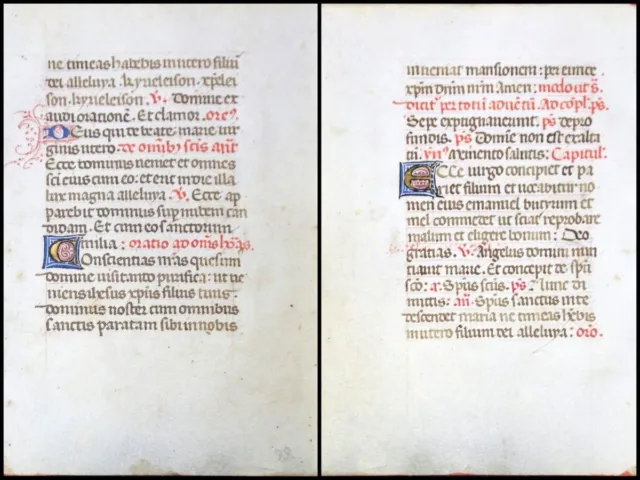 ne timeas habebis in utero filiū
dei alleluya. kyrieleison. xp̄elei
son. kyrieleison. ℣. Domine ex
audi orationē. Et clamor. orō.
Deus qui de beate marie vir
ginis utero. de omnib̄ scīs. anā
Ecce dominus veniet et omnes
scī eius cum eo: et erit in die illa
lux magna alleluya. ℣. Ecce ap
parebit dominus sup nubem can
didam. Et cum eo sanctorum
milia: oratio ad om̄s hōras.
Conscientias nr̄as quesum̄
domine visitando purifica: ut ve
niens ihesus xp̄us filius tuus
dominus noster cum omnibus
sanctis paratam sibi in nobis
inveniat mansionem: per eundē
xp̄m dn̄m nr̄m amen:
dicit̄ per totū advētū. Ad cōpl. p̄s.
Sepe expugnaverunt. p̄s de pro
fundis. p̄s Domine non est exalta
tū. ymn̄s
Ecce virgo concipiet et pa
riet filium et vocabitur no
men eius emanuel butirum et
mel commedet ut sciat reprobare
malum et eligere bonum: Deo
gratias. ℣. Angelus domini nun
tiavit marie. Et concepit de spū
scō: a. Spūs scūs. p̄s. Nunc di
mittis: an̄. Spūs sanctus in te
descendet maria ne timeas hēbis
in utero filium dei alleluya: orō.
22